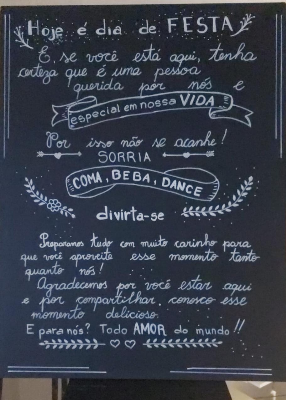 Hoje é dia de FESTA
E, se você está aqui, tenha
certeza que é uma pessoa
querida por nós e
especial em nossa VIDA
Por isso não se acanhe!
SORRIA
COMA, BEBA, DANCE
divirta-se
Preparamos tudo com muito carinho para
que você aproveite esse momento tanto
quanto nós!
Agradecemos por você estar aqui
e por compartilhar conosco esse
momento delicioso.
E para nós? Todo AMOR do mundo!!